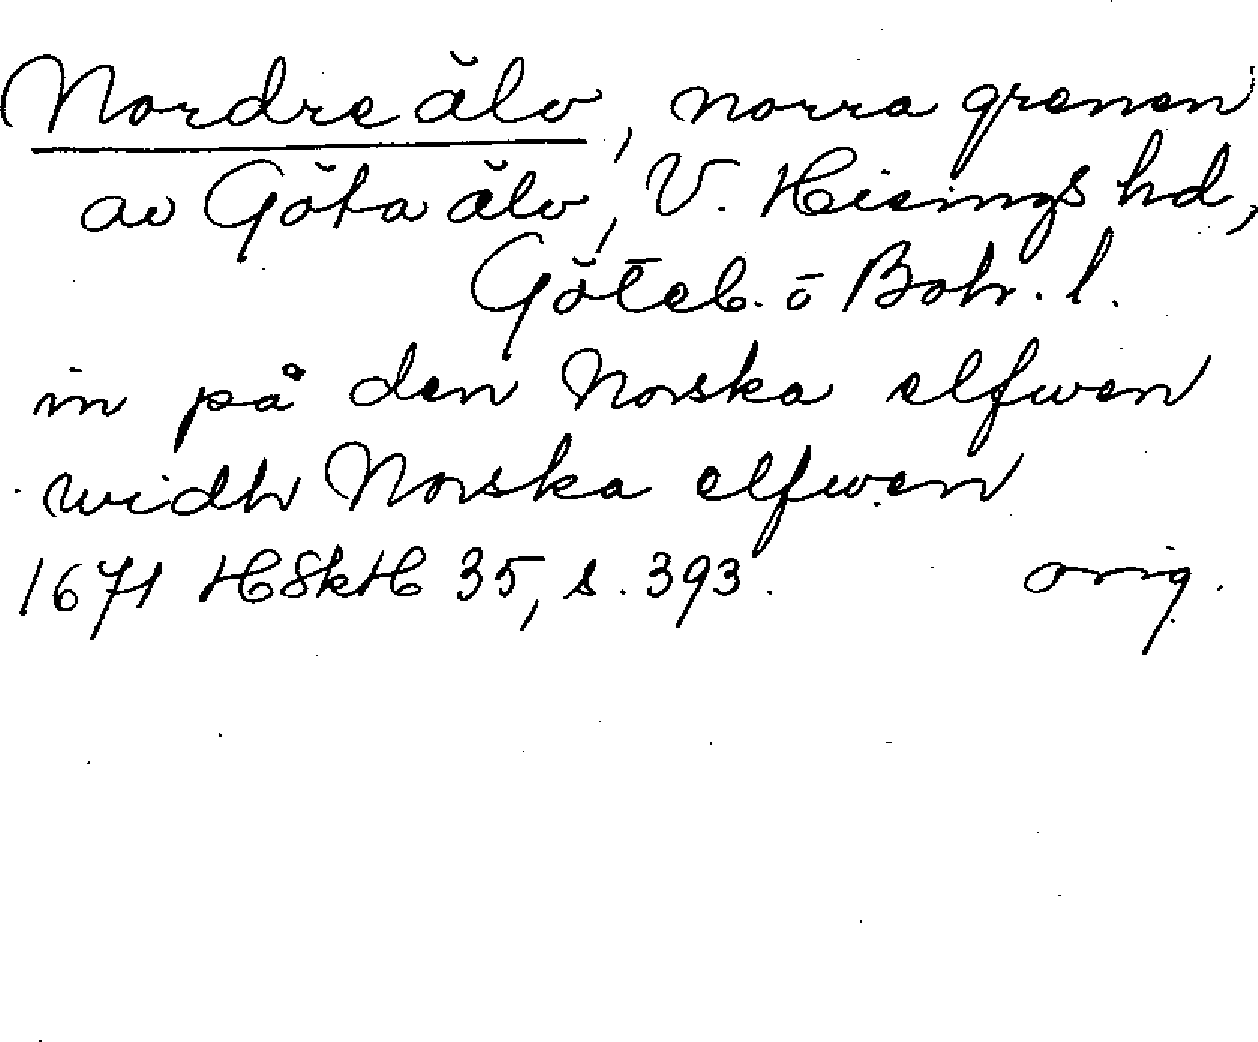 Nordre älv, norra grenen
av Göta älv, V. Hisings hd,
Göteb. o Boh. l.
in på den Norska elfwen
widh Norska elfwen
1671 HSkH 35, s. 393. orig.